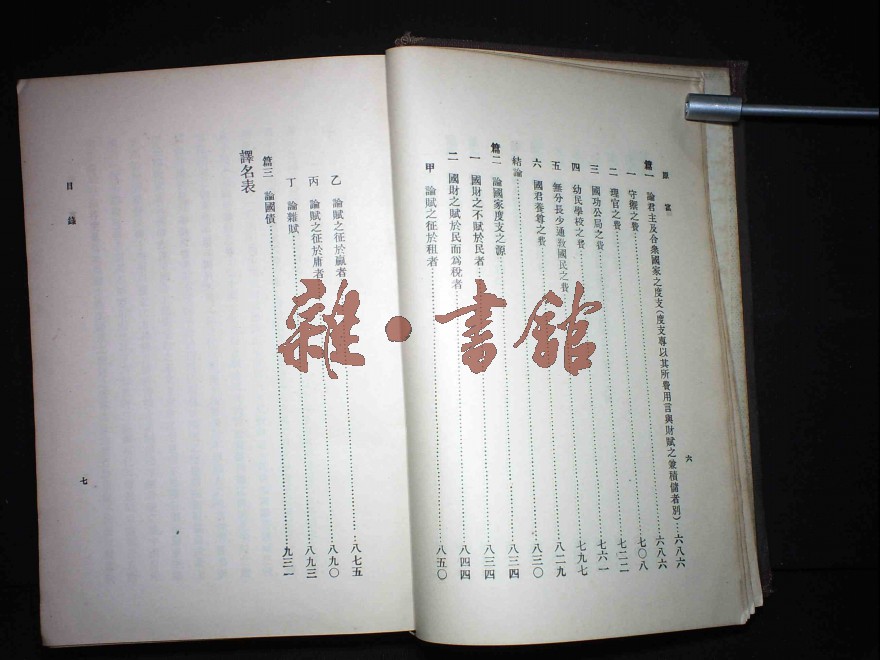 原富
六
篇一 論君主及合衆國家之度支(度支專以其所費用言與財賦之兼積儲者別)…六八六
一 守禦之費…六八六
二 理官之費…七〇八
三 國功公局之費…七二二
四 幼民學校之費…七六一
五 無分長少通敎國民之費…七九七
六 國君養尊之費…八二九
結論…八三〇
篇二 論國家度支之源…八三四
一 國財之不賦於民者…八三四
二 國財之賦於民而爲稅者…八四四
甲 論賦之征於租者…八五〇
乙 論賦之征於贏者…八七五
丙 論賦之征於庸者…八九〇
丁 論雜賦…八九三
篇三 論國債…九三一
譯名表
目錄
七
雜·書館